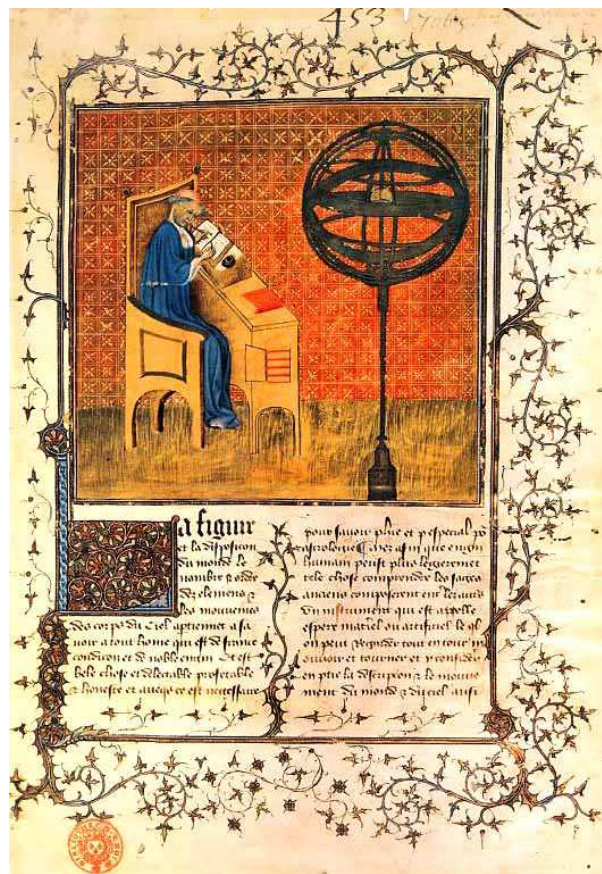 453 7065
a figure
et la disposicion
du monde le
nombre & ordre
des elemens &
les mouvemens
des corps du ciel aptiennent a sa
voir a tout home qui est de franche
condicion et de noble engin Et est
bele chose et delectable profetable
& honeste et avecqs ce est necessaire
pour savoir phie et p especial po
astrologie Et afin que engin
humain peust plus legieremet
tele chose comprendre les sages
anciens composerent
un instrument qui est appelle
espere materiel ou artificiel le ql
on peut regarder tout entour
mouvoir et tourner et y considerer
en ptie la descripcion & le mouve
ment du monde & du ciel aussi